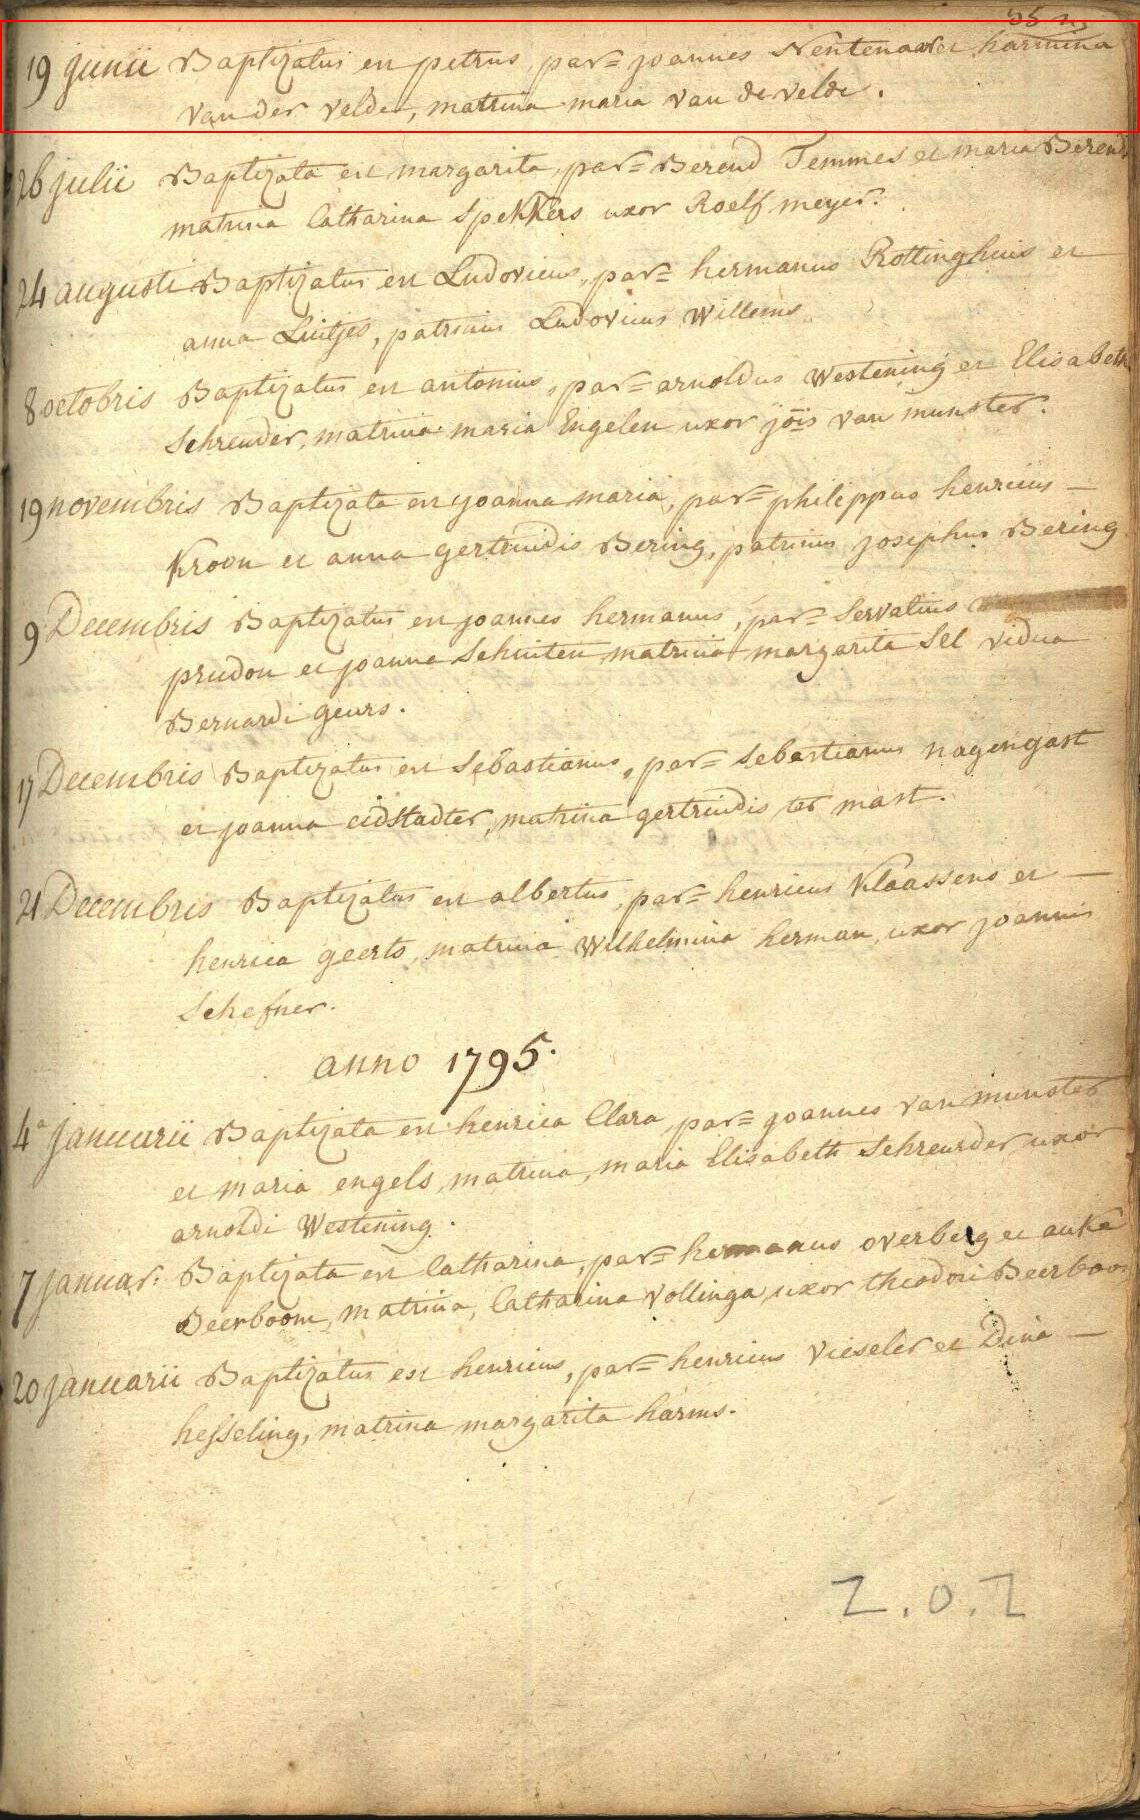 19 junii Baptizatus est petrus, par= joannes Nentenaar et harmina
van der velde, matrina maria van de velde.
26 julii Baptizata est margarita, par= Berend Temmes et maria Berends
matrina Catharina Spekkers uxor Roelf meyer.
24 augusti Baptizatus est Ludovicus, par= hermanus Rottinghuis et
anna Luitjes, patrinus Ludovicus Willems
8 octobris Baptizatus est antonius, par= arnoldus Westening et Elisabeth
Schreuder, matrina maria Engelen uxor jois van munster.
19 novembris Baptizata est joanna maria, par= phileppus henricus —
Kroon et anna gertrudis Bering, patrinus josephus Bering
9 Decembris Baptizatus est joannes hermanus, par= Servatius
prudon et joanna Schuiten matrina margarita Sel vidua
Bernardi geurs.
17 Decembris Baptizatus est Sebastianus, par= Sebastianus nagengast
et joanna eidstadter, matrina gertrudis ter mast.
21 Decembris Baptizatus est albertus, par= henricus Klaassens et —
henrica geerts, matrina Wilhelmina herman, uxor joannis
Schefner.
anno 1795.
4a januarii Baptizata est henrica Clara, par= joannes van munster
et maria engels, matrina, maria Elisabeth Schreurder uxor
arnoldi Westening.
7 januar: Baptizata est Catharina, par= hermanus overberg et anka
Beerboom, matrina, Catharina Vollinga uxor theodori Beerboom
20 januarii Baptizatus est henricus, par= henricus Vieseler et Dina —
hesseling, matrina margarita harms.
Z.O.Z